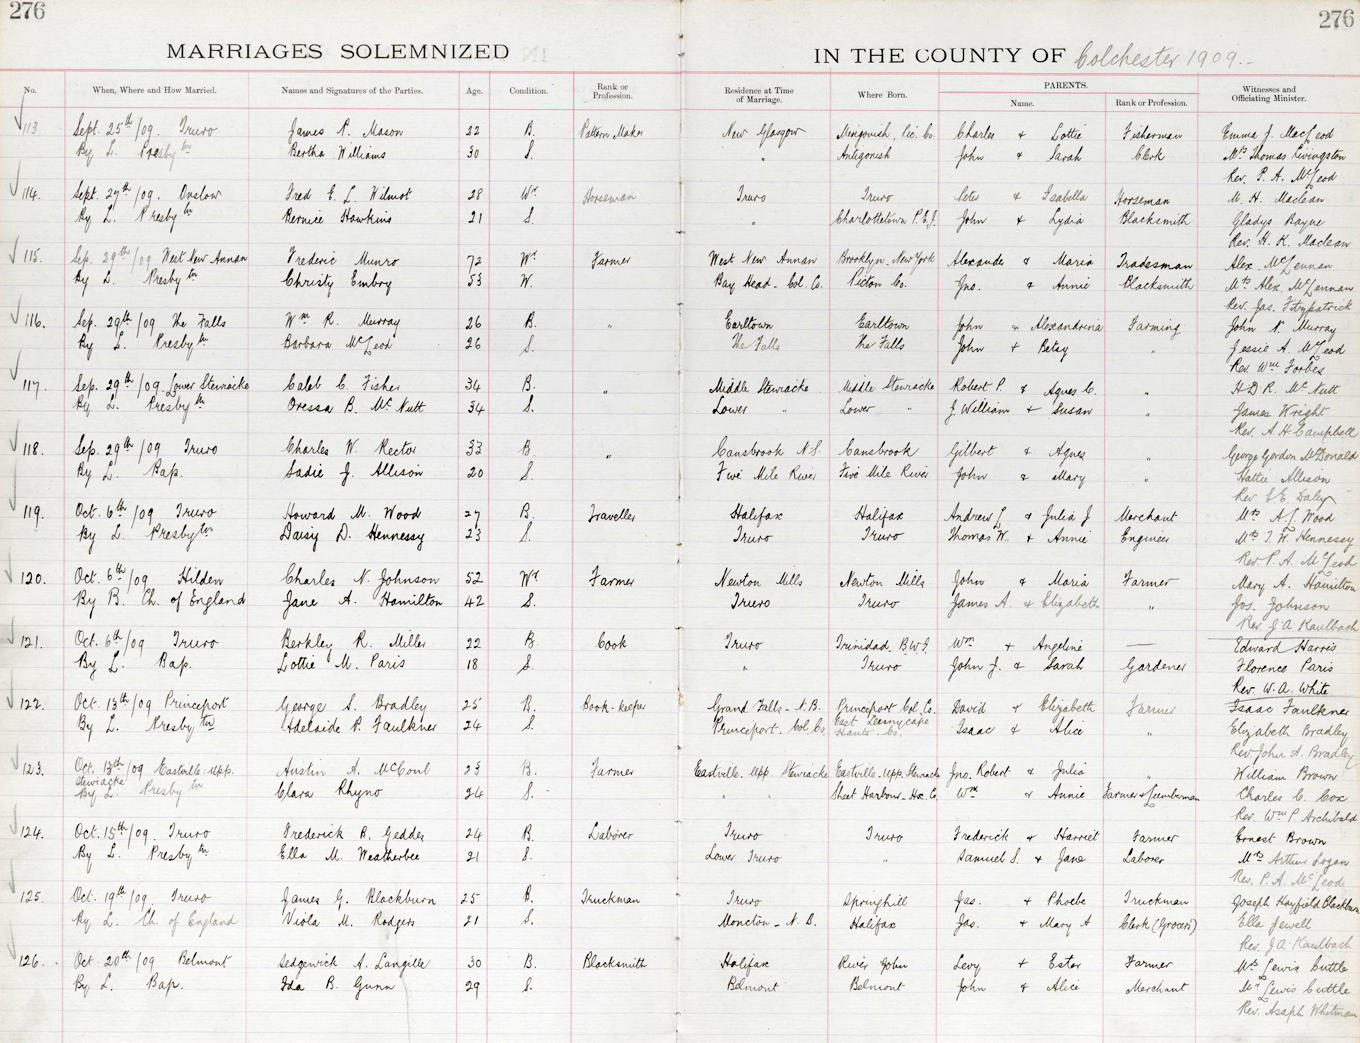 276
276
MARRIAGES SOLEMNIZED
IN THE COUNTY OF Colchester 1909.-
No. When, Where and How Married. Names and Signatures of the Parties. Age. Condition. Rank or Profession. Residence at Time of Marriage. Where Born. PARENTS. Name. Rank or Profession. Witnesses and Officiating Minister.
113 Sept. 25th/09. Truro James P. Mason 22 B. Pattern Maker New Glasgow Merigonish, Pic. Co. Charles & Lottie Fisherman Emma J. MacLeod
By L. Presbytn Bertha Williams 30 S. " Antigonish John & Sarah Clerk Mrs Thomas Livingston
Rev. P. A. McLeod
114. Sept. 27th/09. Onslow Fred E. L. Wilmot 28 Wr Horseman Truro Truro Peter & Isabella Horseman M. H. Maclean
By L. Presbytn Bernice Hawkins 21 S. " Charlottetown P.E.I. John & Lydia Blacksmith Gladys Bayne
Rev. H. K. Maclean
115. Sep. 29th/09 West New Annan Frederic Munro 72 Wr Farmer West New Annan Brooklyn, New York Alexander & Maria Tradesman Alex. McLennan
By L. Presbytn Christy Embry 53 W. Bay Head - Col. Co. Pictou Co. Jno. & Annie Blacksmith Mrs Alex. McLennan
Rev. Jas. Fitzpatrick
116. Sep. 29th/09 The Falls Wm R. Murray 26 B. " Earltown Earltown John " Alexandrina Farming John N. Murray
By L. Presbytn Barbara McLeod 26 S. The Falls The Falls John + Betsy " Jessie A. McLeod
Rev. Wm Forbes
117. Sep. 29th/09. Lower Stewiacke Caleb C. Fisher 34 B. " Middle Stewiacke Middle Stewiacke Robert P. & Agnes C. " H D R. McNutt
By L. Presbytn Oressa B. McNutt 34 S. Lower " Lower " J. William + Susan " James Wright
Rev. A. H. Campbell
118. Sep. 29th/09 Truro Charles W. Rector 33 B. " Cansbrook N.S. Cansbrook Gilbert & Agnes " George Gordon McDonald
By L. Bap. Sadie J. Allison 20 S. Five Mile River Five Mile River John & Mary " Hattie Allison
Rev. Daley
119. Oct. 6th/09 Truro Howard M. Wood 27 B. Traveller Halifax Halifax Andrew L & Julia J Merchant Mrs A. J Wood
By L. Presbytn Daisy D. Hennessy 23 S. Truro Truro Thomas W. & Annie Engineer Mrs T. W. Hennessy
Rev. P. A. McLeod
120. Oct. 6th/09. Hilden Charles N. Johnson 52 Wr Farmer Newton Mills Newton Mills John & Maria Farmer Mary A. Hamilton
By B. Ch. of England Jane A. Hamilton 42 S. Truro Truro James A. & Elizabeth " Jos. Johnson
Rev. J. A. Kaulbach
121. Oct. 6th/09 Truro Berkley R. Miller 22 B. Cook Truro Trinidad. B.W.I. Wm + Angeline — Edward Harris
By L. Bap. Lottie M. Paris 18 S. " Truro John J. & Sarah Gardener Florence Paris
Rev. W. A. White
122. Oct. 13th/09 Princeport George S. Bradley 25 B. Book-keeper Grand Falls - N.B. Princeport Col. Co. David & Elizabeth Farmer Isaac Faulkner
By L. Presbytn Adelaide P. Faulkner 24 S. Princeport. Col. Co. East Hants. Co. Isaac & Alice " Elizabeth Bradley
Rev. John A. Bradley
123. Oct. 13th/09 Eastville. Upp. Stewiacke Austin A. McCoul 23 B. Farmer Eastville. Upp. Stewiacke Eastville. Upp. Stewiacke Jno. Robert & Julia " William Brown
By L. Presbytn Clara Rhyno 24 S. " " Sheet Harbour - Hx. Co. Wm & Annie Farmer & Lumberman Charles C. Cox
Rev. Wm P. Archibald
124. Oct. 15th/09. Truro Frederick B. Geddes 24 B. Laborer Truro Truro Frederick & Harriet Farmer Ernest Brown
By L. Presbytn Ella M. Weatherbee 21 S. Lower Truro " Samuel S. & Jane Laborer Mrs Arthur Logan
Rev. P. A. McLeod
125. Oct. 19th/09. Truro James G. Blackburn 25 B. Truckman Truro Springhill Jas. & Phoebe Truckman Joseph Hayfield Blackburn
By L. Ch. of England Viola M. Rodgers 21 S. Moncton - N.B. Halifax Jas. & Mary A Clerk (Grocers) Ella Jewell
Rev. J. A. Kaulbach
126. Oct. 20th/09 Belmont Sedgewick A. Langille 30 B. Blacksmith Halifax River John Levy + Ester Farmer Mrs Lewis Cuttle
By L. Bap. Ida B. Gunn 29 S. Belmont Belmont John & Alice Merchant Mr Lewis Cuttle
Rev. Asaph Whitman